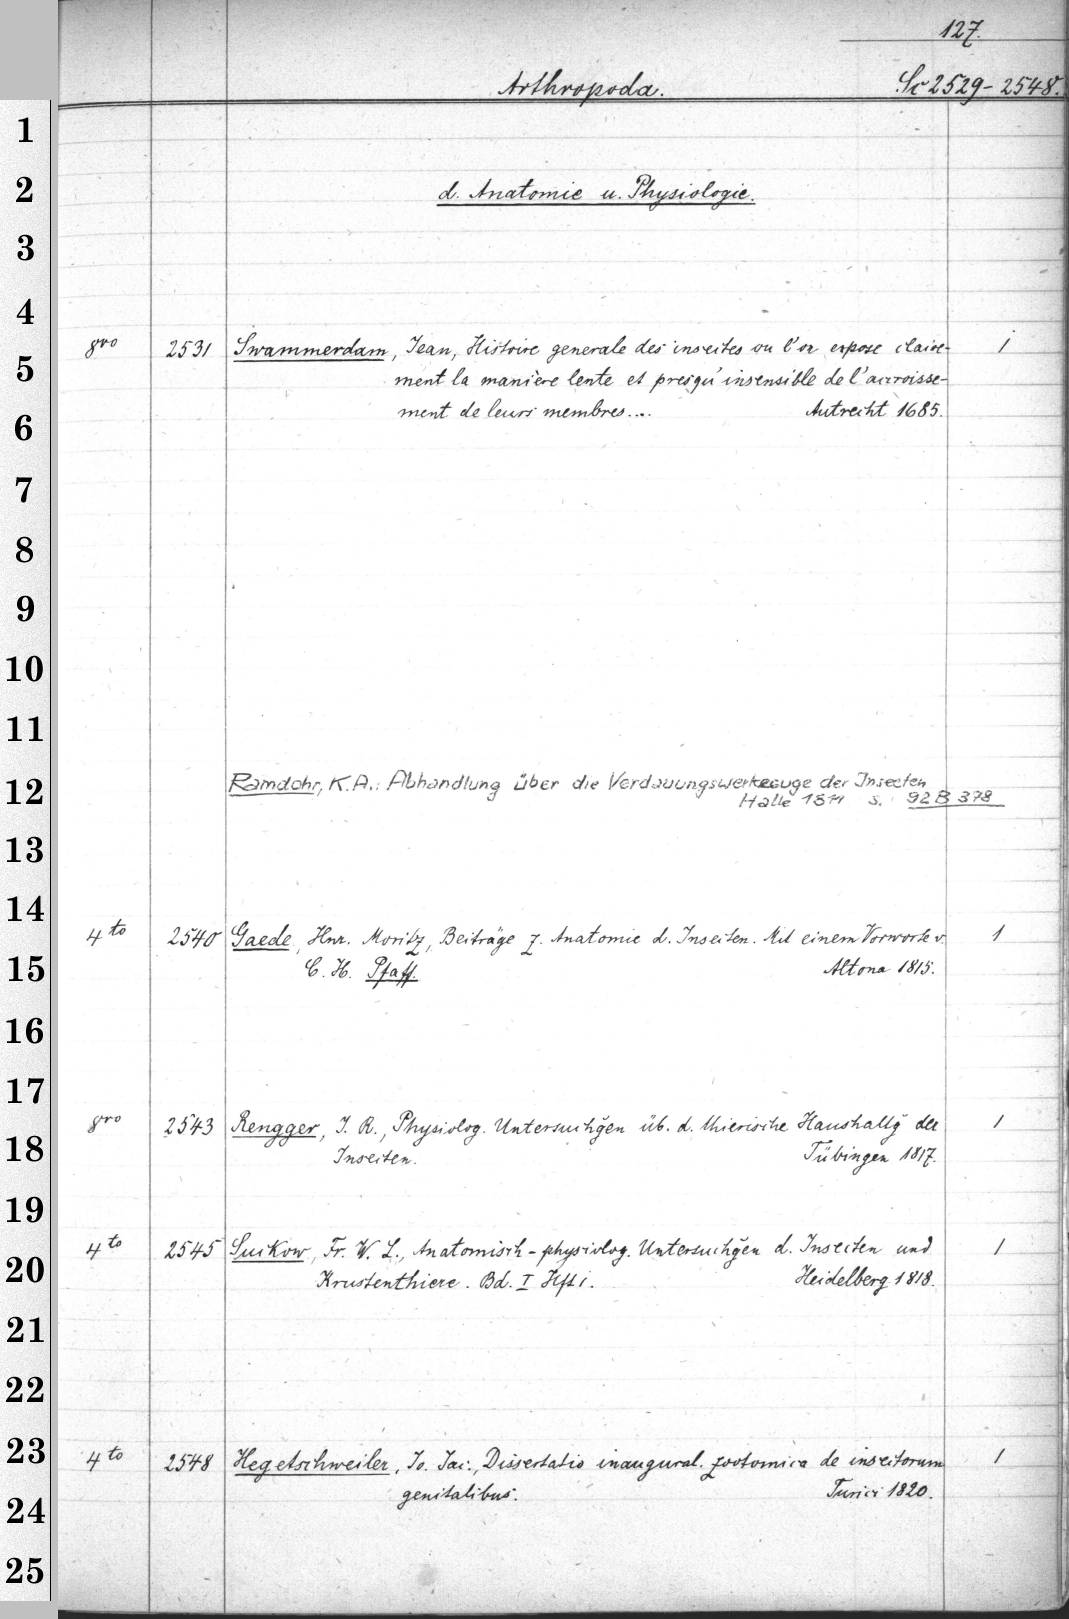 127.
Arthropoda. Sc 2529-2548.
1
2
d. Anatomie u. Physiologie.
3
4
8vo 2531 Swammerdam, Jean, Histoire generale des insectes ou l'on expose claire- 1
5
ment la maniere lente et presqu'insensible de l'accroisse-
6
ment de leurs membres... Autrecht 1685.
7
8
9
10
11
12
Ramdohr, K.A.: Abhandlung über die Verdauungswerkzeuge der Insecten
Halle 1811 s. 92 B 378
13
14
4to 2540 Gaede, Hnr. Moritz, Beiträge z. Anatomie d. Insecten. Mit einem Vorworte v. 1
15
C. H. Pfaff. Altona 1815.
16
17
8vo 2543 Rengger, J. R., Physiolog. Untersuchgen üb. d. thierische Haushaltg der 1
18
Insecten. Tübingen 1817.
19
4to 2545 Suckow, Fr. W. L., Anatomisch-physiolog. Untersuchgen d. Insecten und 1
20
Krustenthiere. Bd. I Hft 1. Heidelberg 1818.
21
22
23
4to 2548 Hegetschweiler, Jo. Jac., Dissertatio inaugural. zootomica de insectorum 1
24
genitalibus. Turici 1820.
25